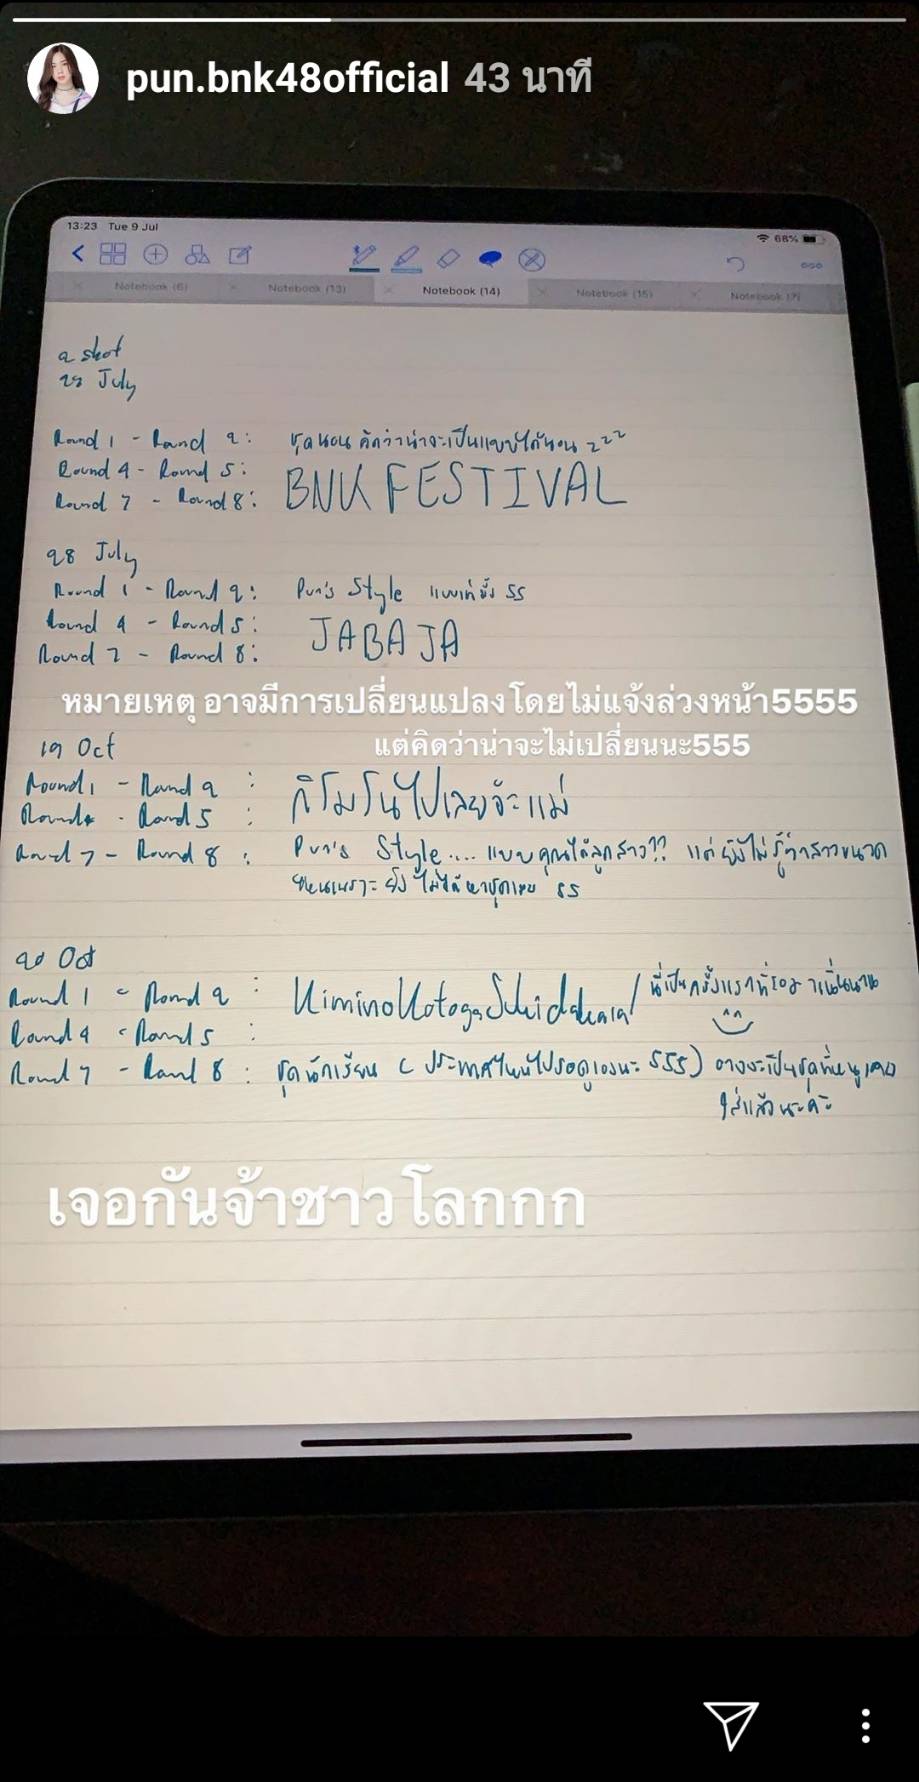 pun.bnk48official 43 นาที
13:23 Tue 9 Jul
68%
Notebook (6)
Notebook (13)
Notebook (14)
Notebook (15)
Notebook (7)
2 shot
July
Round 1 - Round 2: ชุดนอน คิดว่าน่าจะเป็นแบบใส่นอน zzz
Round 4 - Round 5:
BNK FESTIVAL
Round 7 - Round 8:
28 July
Round 1 - Round 2: Pun's Style แบบเท่
Round 4 - Round 5:
JABAJA
Round 7 - Round 8:
หมายเหตุ อาจมีการเปลี่ยนแปลงโดยไม่แจ้งล่วงหน้า5555
แต่คิดว่าน่าจะไม่เปลี่ยนนะ555
19 Oct
Round 1 - Round 2 : กิโมโนไปเลยจ้ะแม่
Round 4 - Round 5 :
Round 7 - Round 8 : Pun's Style.... แบบคุณได้ลูกสาว?? แต่ยังไม่รู้ว่าสาวขนาด
ไหนเพราะยังไม่ได้หาชุดเลย 55
20 Oct
Round 1 - Round 2 : Kimino Kotoga Sukidakara/ นี่เป็นครั้งแรกที่
Round 4 - Round 5 :
Round 7 - Round 8 : ชุดนักเรียน (ประเทศไหนไปรอดูเองนะ 555) อาจจะเป็นชุดที่หนูเคย
ใส่แล้วนะคะ
เจอกันจ้าชาวโลกกก